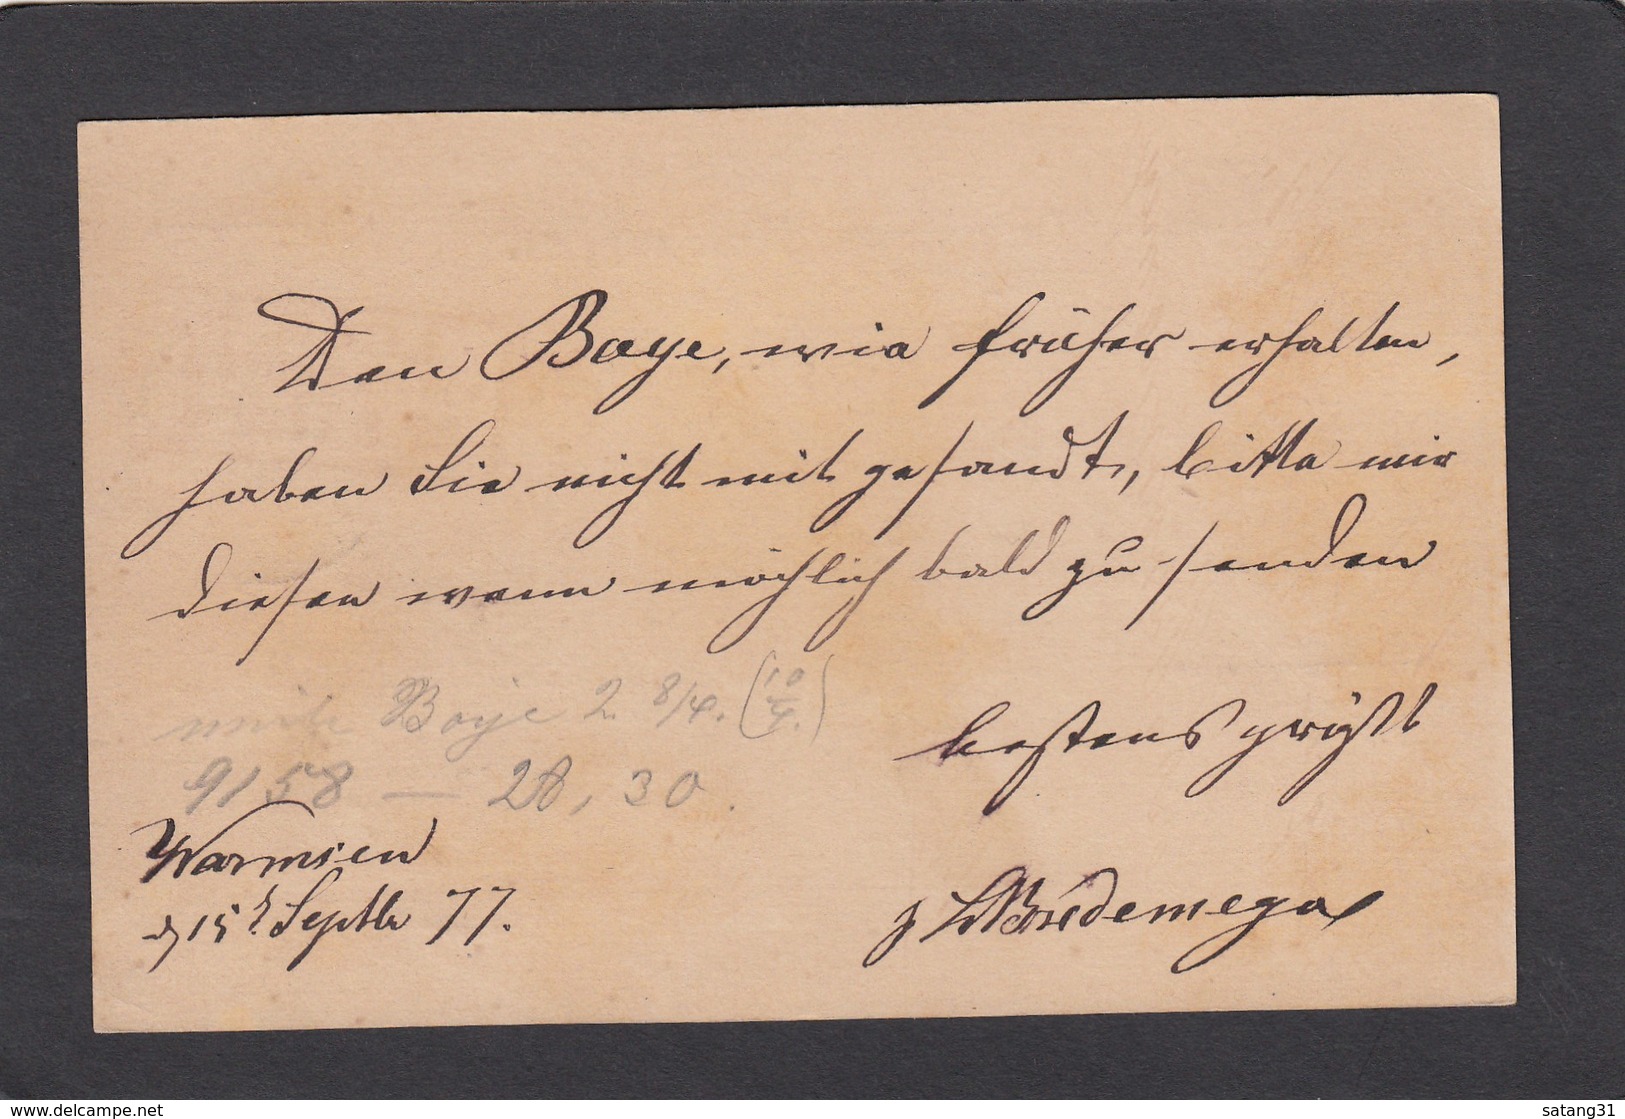 Den Boye, wie früher erhalten,
haben Sie nicht mit gesandt, bitte mir
diesen wenn möchlich bald zu senden
Boye 2 8/4. (10/4.)
9158 — 28,30.
bestens grüßt
Warmsen
d 15t Septbr 77.
www.delcampe.net
satang31